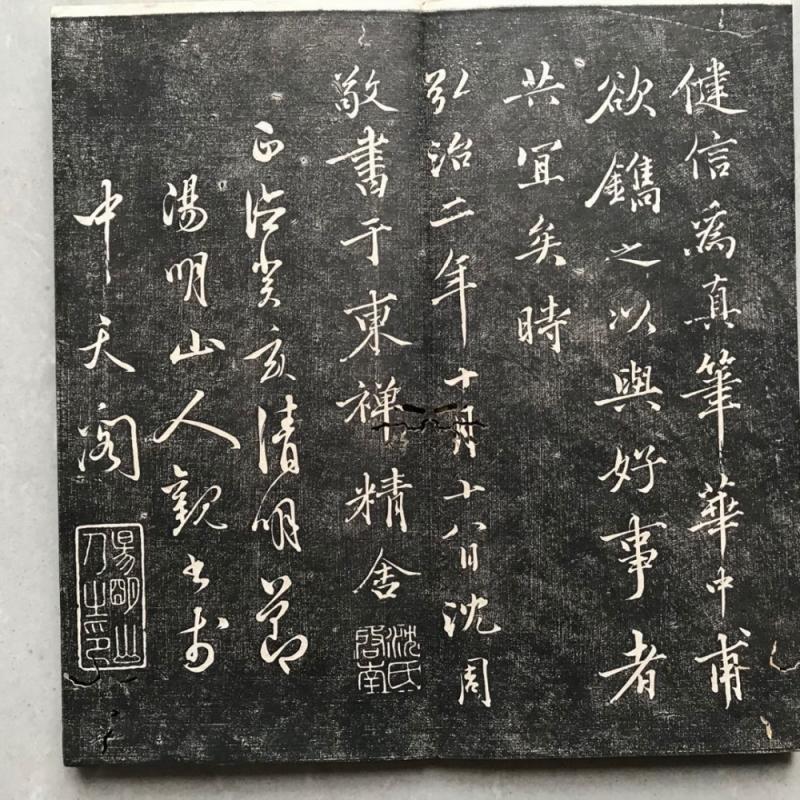 健信為真筆華中甫
欲鐫之以與好事者
共宜矣時
弘治二年十月十八日沈周
敬書于東禅精舍
沈氏啓南
正德癸亥清明節
陽明山人觀書於
中天閣
陽明山人之印